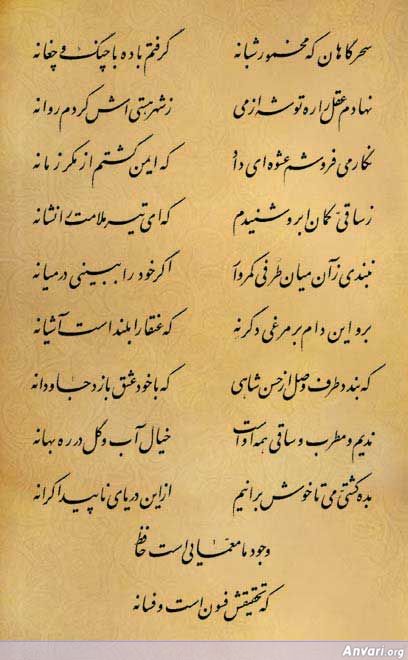 سحرگاهان که مخمور شبانه گرفتم باده با چنگ و چغانه
نهادم عقل را ره توشه از می ز شهر هستی اش کردم روانه
نگار می فروشم عشوه ای داد که ایمن گشتم از مکر زمانه
ز ساقی کمان ابرو شنیدم که ای تیر ملامت را نشانه
نبندی زآن میان طرفی کمروار اگر خود را ببینی در میانه
برو این دام بر مرغی دگر نه که عنقا را بلند است آشیانه
که بندد طرف وصل از حسن شاهی که با خود عشق بازد جاودانه
ندیم و مطرب و ساقی همه اوست خیال آب و گل در ره بهانه
بده کشتی می تا خوش برانیم از این دریای ناپیدا کرانه
وجود ما معمایی است حافظ
که تحقیقش فسون است و فسانه
Anvari.org